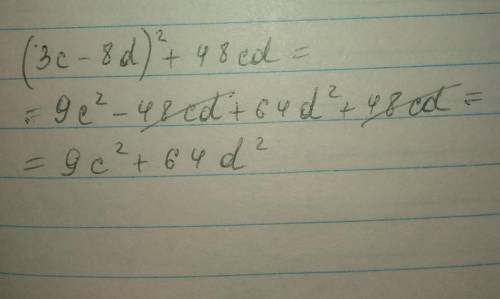 (3c - 8d)² + 48cd =
= 9c² - 48cd + 64d² + 48cd =
= 9c² + 64d²